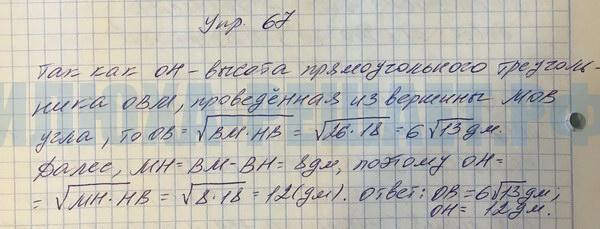 Упр. 67
Так как OH - высота прямоугольного треуголь-
ника OBM, проведённая из вершины MOB
угла, то OB = √BM·HB = √26·18 = 6√13 дм.
Далее, MH = BM - BH = 8 дм, поэтому OH =
= √MH·HB = √8·18 = 12 (дм). Ответ: OB = 6√13 дм;
OH = 12 дм.